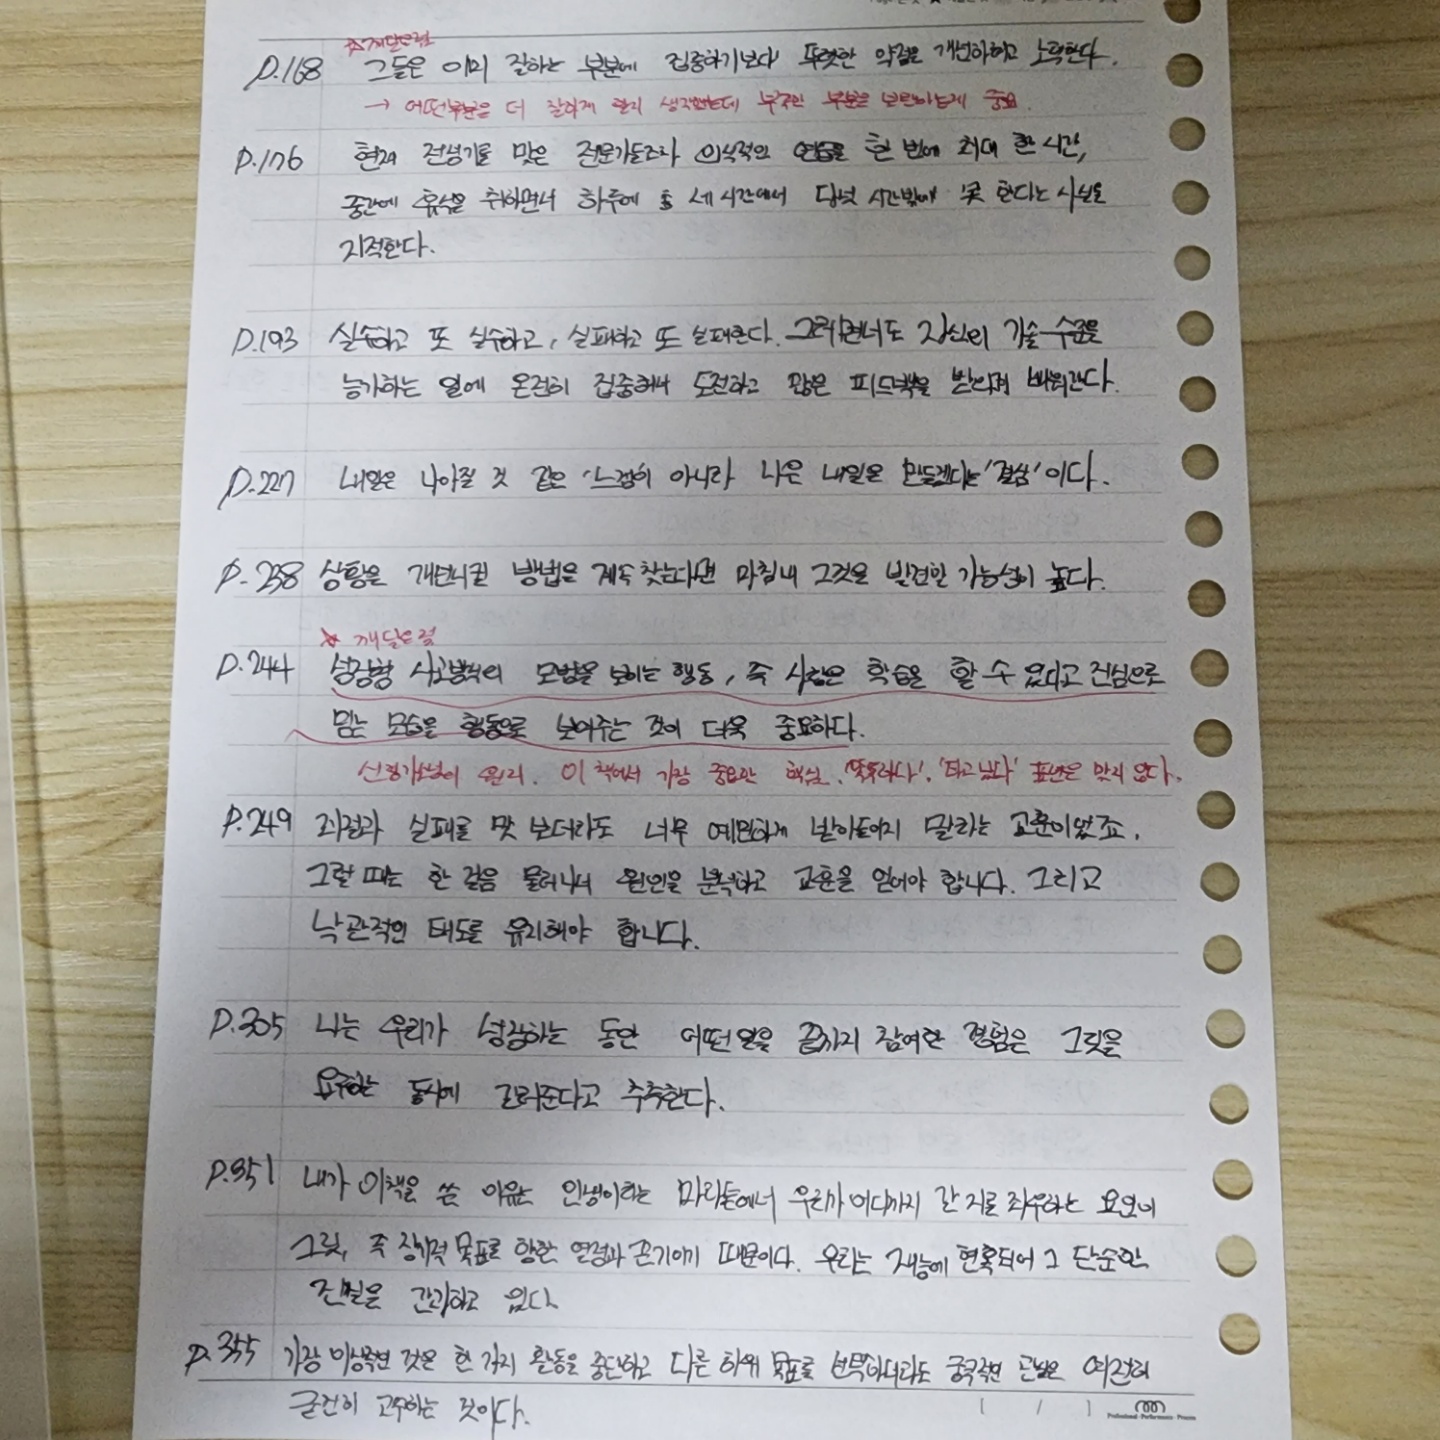 ☆깨달은점
P.168 그들은 이미 잘하는 부분에 집중하기보다 뚜렷한 약점을 개선하려고 노력한다.
→ 어떤부분을 더 잘하게 할지 생각했는데 부족한 부분을 보완하는게 중요.
P.176 현재 전성기를 맞은 전문가들조차 의식적인 연습을 한 번에 최대 한 시간,
중간에 휴식을 취하면서 하루에 총 세 시간에서 다섯 시간밖에 못 한다는 사실을
지적한다.
P.193 실수하고 또 실수하고, 실패하고 또 실패한다. 그러면서도 자신의 기술 수준을
능가하는 일에 온전히 집중해서 도전하고 많은 피드백을 받으며 배워간다.
P.227 내일은 나아질 것 같은 '느낌'이 아니라 나은 내일을 만들겠다는 '결심'이다.
P.238 상황을 개선시킬 방법을 계속 찾는다면 마침내 그것을 발견할 가능성이 높다.
★ 깨달은점
P.244 성장형 사고방식의 모범을 보이는 행동, 즉 사람은 학습을 할 수 있다고 진심으로
믿는 모습을 행동으로 보여주는 것이 더욱 중요하다.
이 책에서 가장 중요한 핵심. '똑똑하다', '타고났다' 표현은 맞지 않다.
P.249 좌절과 실패를 맛 보더라도 너무 예민하게 받아들이지 말라는 교훈이었죠.
그럴 때는 한 걸음 물러나서 원인을 분석하고 교훈을 얻어야 합니다. 그리고
낙관적인 태도를 유지해야 합니다.
P.305 나는 우리가 성장하는 동안 어떤 일을 끝까지 참여한 경험은 그릿을
요구하는 동시에 길러준다고 추측한다.
P.351 내가 이책을 쓴 이유는 인생이라는 마라톤에서 우리가 어디까지 갈 지를 좌우하는 요인이
그릿, 즉 장기적 목표를 향한 열정과 끈기이기 때문이다. 우리는 재능에 현혹되어 그 단순한
진실을 간과하고 있다.
P.355 가장 이상적인 것은 한 가지 활동을 중단하고 다른 하위 목표를 선택하더라도 궁극적인 관심은 여전히
굳건히 고수하는 것이다.
Professional Performance Process